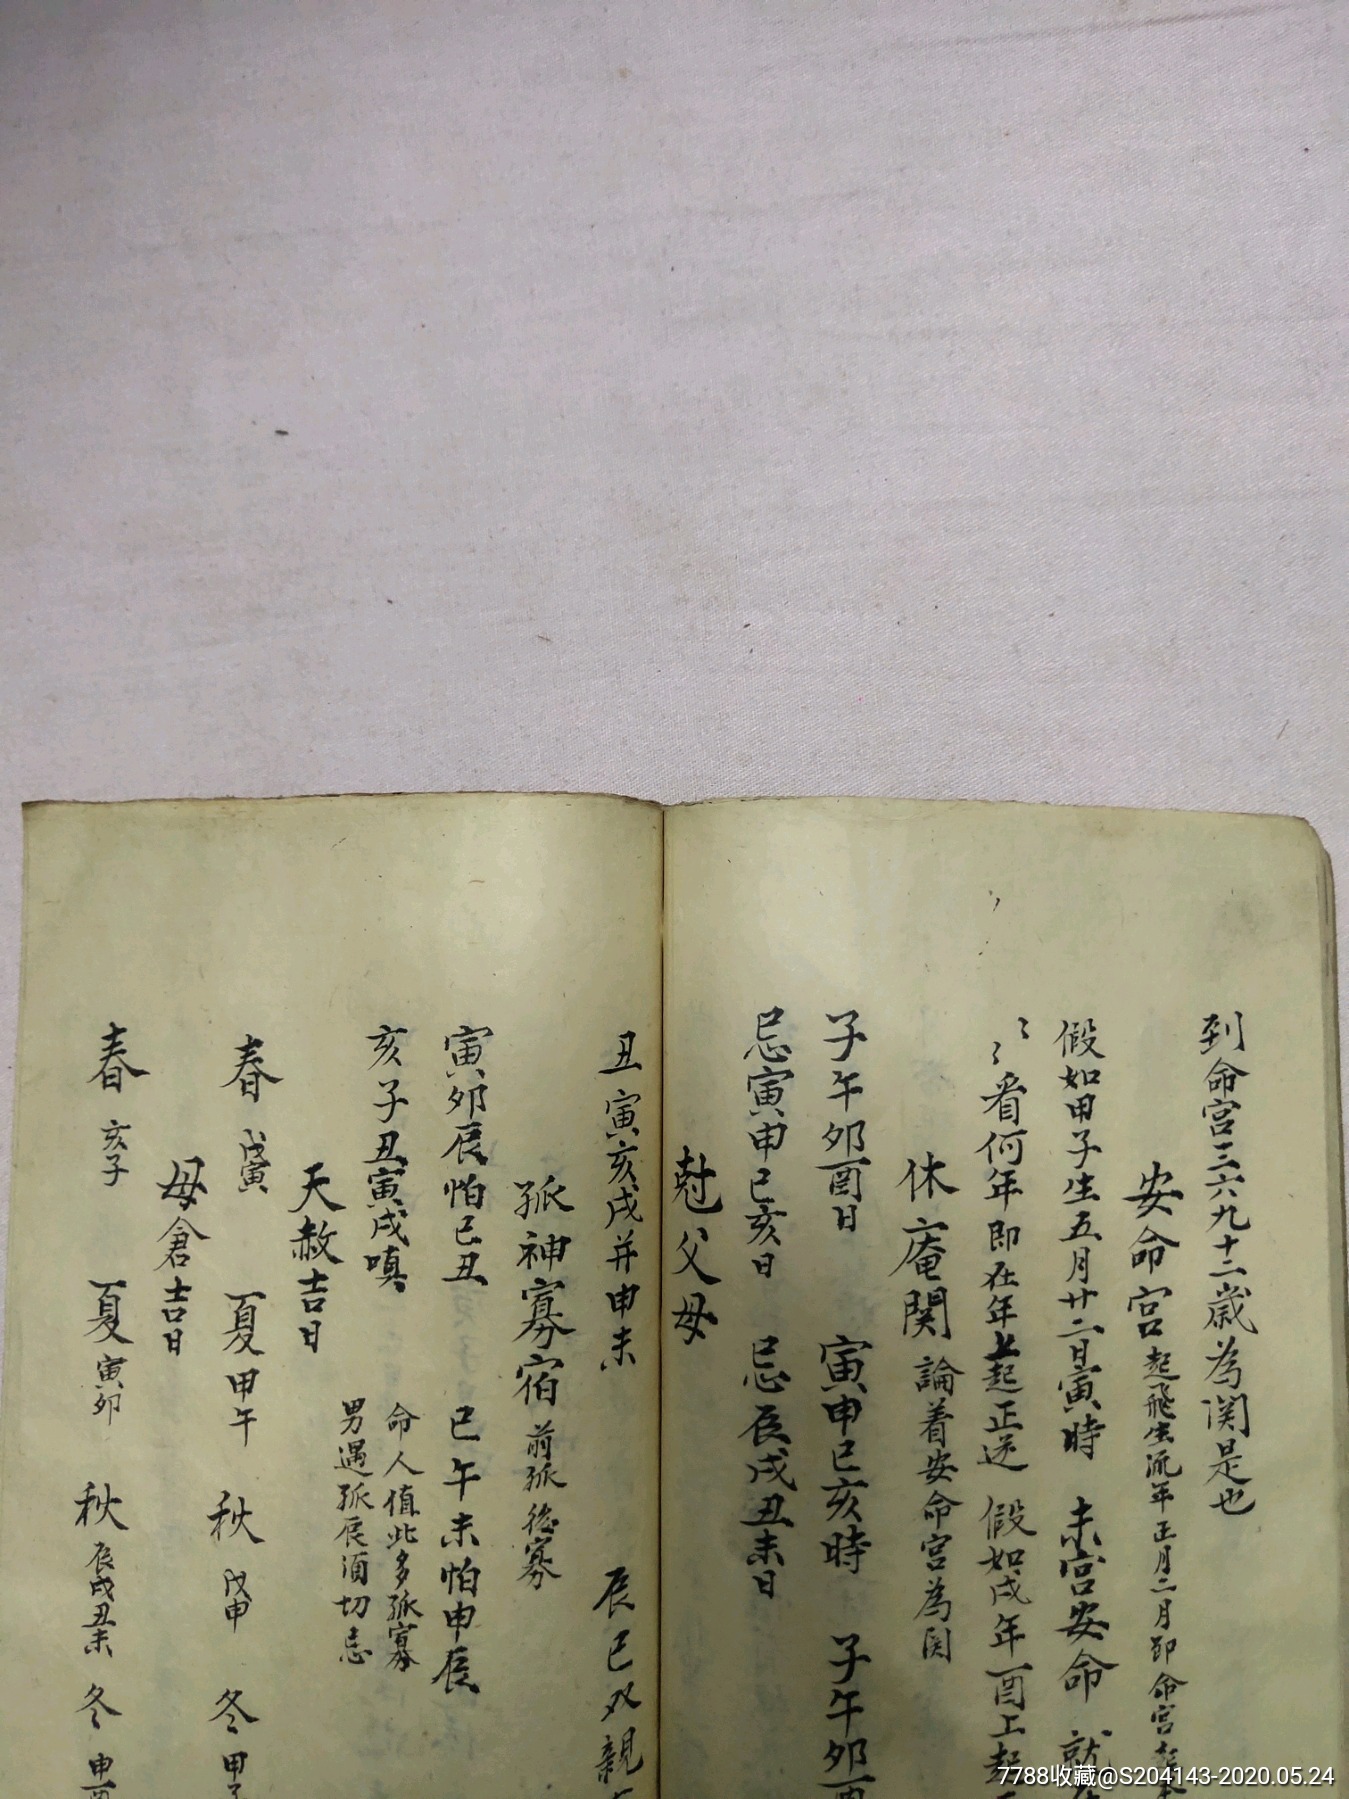 到命宮三六九十二歲為関是也
安命宮起飛生流年正月二月即命宮起
假如甲子生五月廿二日寅時 未宮安命 就
〻〻看何年即在年上起正逆 假如戌年酉上起
休庵関 論着安命宮為関
子午卯酉日 寅申巳亥時 子午卯酉
忌寅申巳亥日 忌辰戌丑未日
尅父母
丑寅亥戌并申未 辰巳双親
孤神寡宿 前孤後寡
寅卯辰怕巳丑 巳午未怕申辰
亥子丑寅戌嗔 命人值此多孤寡
男遇孤辰須切忌
天赦吉日
春 戊寅 夏 甲午 秋 戊申 冬 甲子
母倉吉日
春 亥子 夏 寅卯 秋 辰戌丑未 冬 申酉
7788收藏@S204143-2020.05.24